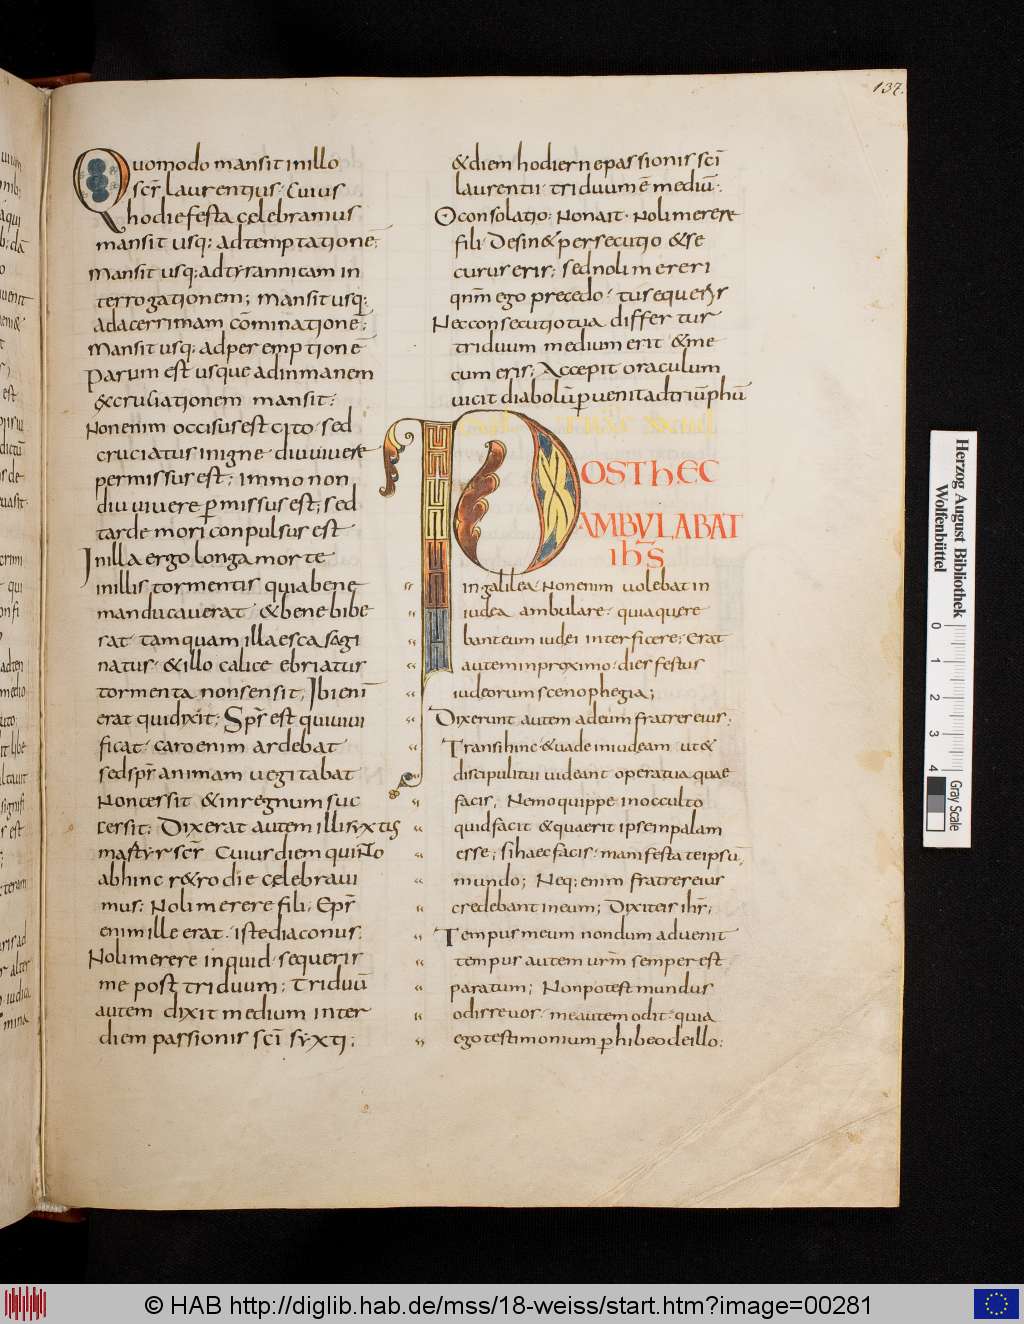 137.
Quomodo mansit inillo
scr̄ laurentius· Cuius
hodie festa celebramus
mansit usq; adtemptationē;
Mansit usq; adtyrannicam in
terrogationem; Mansit usq;
adacerrimam cōminationē;
Mansit usq; adperemptionē
Parum est usque adinmanem
&cruciationem mansit;
Nonenim occisus est cito· sed
cruciatus inigne· diu uiuere
permissus est; immo non
diu uiuere p̄missus est; sed
tarde mori conpulsus est
Inilla ergo longa morte
inillis tormentis quia bene
manducauerat· & bene bibe
rat· tamquam illa esca sagi
natus· & illo calice ebriatus
tormenta non sensit; Ibi enī
erat qui dixit; Spr̄ est qui uiui
ficat· caro enim ardebat
sed spr̄ animam uegitabat
Noncessit & inregnum suc
cersit; Dixerat autem illi syxtus
martyr scr̄ Cuius diem quinto
abhinc r&ro die celebraui
mus; Noli merere fili; Epr̄
enim ille erat· iste diaconus;
Noli merere inquid· sequeris
me post triduum; Triduū
autem dixit medium inter
diem passionis scī syxti;
& diem hodierne passionis scī
laurentii· triduum ē mediū;
O consolatio; Non ait· Noli merere
fili· Desin& persecutio & se
curus eris; sed noli mereri
qnm̄ ego precedo· tu sequeris
Nec consecutio tua differtur
triduum medium erit & me
cum eris; Accepit oraculum
uicit diabolū puenit adtriūphū
POST hEC
AMBULABAT
ihs̄
in galilea· Nonenim uolebat in
iudea ambulare· quia quere
bant eum iudei interficere; Erat
autem inproximo· dies festus
iudeorum scenophegia;
Dixerunt autem adeum fratres eius;
Transi hinc· & uade iniudeam· ut &
discipuli tui uideant opera tua quae
facis; Nemo quippe inocculto
quid facit & quaerit ipse inpalam
esse; si haec facis· manifesta te ipsū
mundo; Neq; enim fratres eius
credebant ineum; Dixit eis ihs̄;
Tempus meum nondum aduenit
tempus autem urm̄ semper est
paratum; Non potest mundus
odisse uos· me autem odit· quia
ego testimonium phibeo de illo;
Herzog August Bibliothek
Wolfenbüttel
0 1 2 3 4
Gray Scale
© HAB http://diglib.hab.de/mss/18-weiss/start.htm?image=00281